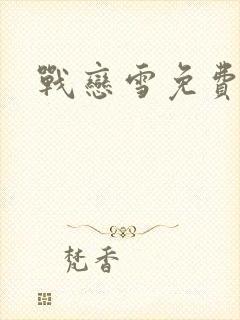 戰戀雪免費
梵香